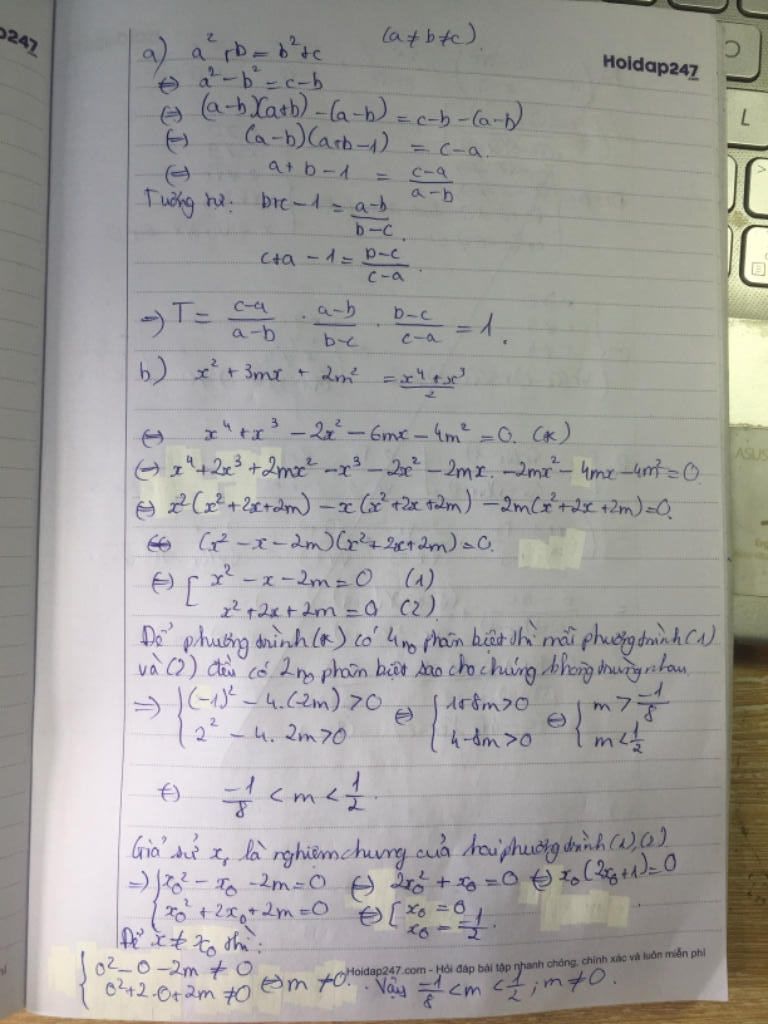 247
Hoidap247
(a ≠ b ≠ c).
a) a² + b = b² + c
⇔ a² - b² = c - b
⇔ (a-b)(a+b) - (a-b) = c-b-(a-b)
⇔ (a-b)(a+b-1) = c-a.
⇔ a + b - 1 = \frac{c-a}{a-b}
Tương tự: b+c-1 = \frac{a-b}{b-c}.
c+a-1 = \frac{b-c}{c-a}.
⇒ T = \frac{c-a}{a-b} . \frac{a-b}{b-c} . \frac{b-c}{c-a} = 1.
b) x² + 3mx + 2m² = \frac{x⁴+x³}{2}
⇔ x⁴ + x³ - 2x² - 6mx - 4m² = 0. (*)
⇔ x⁴ + 2x³ + 2mx² - x³ - 2x² - 2mx. - 2mx² - 4mx - 4m² = 0
⇔ x²(x² + 2x + 2m) - x(x² + 2x + 2m) - 2m(x² + 2x + 2m) = 0.
⇔ (x² - x - 2m)(x² + 2x + 2m) = 0.
⇔ [ x² - x - 2m = 0 (1)
x² + 2x + 2m = 0 (2)
Để phương trình (*) có 4 no phân biệt thì mỗi phương trình (1)
và (2) đều có 2 no phân biệt sao cho chúng không trùng nhau
⇒ { (-1)² - 4.(-2m) > 0 ⇔ { 1+8m > 0 ⇔ { m > \frac{-1}{8}
2² - 4. 2m > 0 4 - 8m > 0 m < \frac{1}{2}
⇔ \frac{-1}{8} < m < \frac{1}{2}.
Giả sử x₀ là nghiệm chung của hai phương trình (1), (2)
⇒ { x₀² - x₀ - 2m = 0 ⇔ 2x₀² + x₀ = 0 ⇔ x₀(2x₀+1) = 0
x₀² + 2x₀ + 2m = 0 ⇔ [ x₀ = 0
x₀ = \frac{-1}{2}.
Để x ≠ x₀ thì:
{ 0² - 0 - 2m ≠ 0
0² + 2.0 + 2m ≠ 0 ⇔ m ≠ 0. Vậy \frac{-1}{8} < m < \frac{1}{2}; m ≠ 0.
Hoidap247.com - Hỏi đáp bài tập nhanh chóng, chính xác và luôn miễn phí
L
ASUS